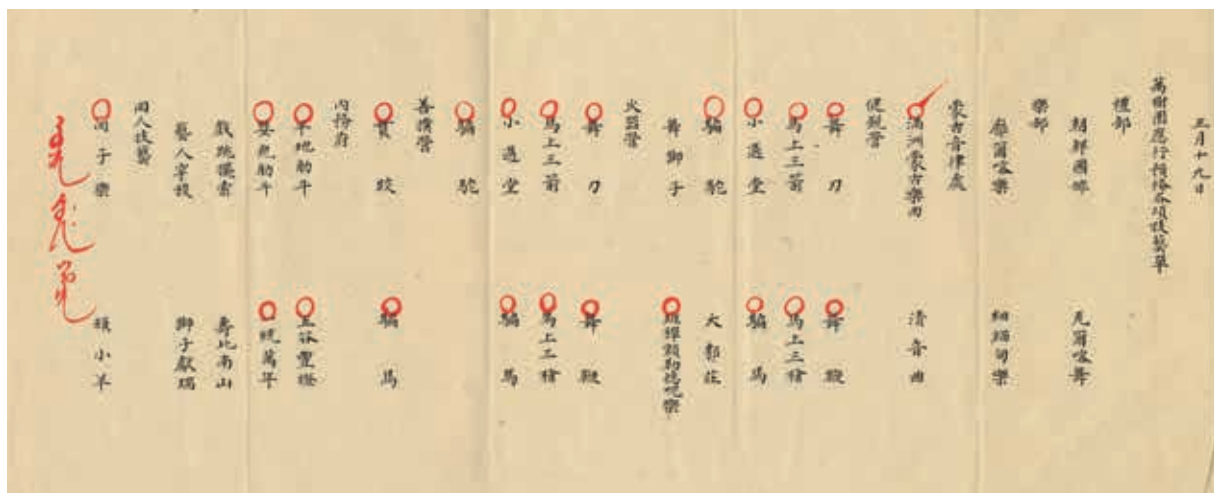 三月十九日
萬樹園應行預備各項技藝單
禮部
朝鮮國俳 瓦爾喀舞
樂部
廓爾喀樂 細緬甸樂
蒙古音律處
滿洲蒙古樂曲 清音曲
健銳營
舞刀 舞鞭
馬上三箭 馬上三槍
小過堂 騙馬
騙駝 大郭莊
舞獅子 班禪額勒德呢樂
火器營
舞刀 舞鞭
馬上三箭 馬上三槍
小過堂 騙馬
騙駝
善撲營
貫跤 騙馬
內務府
平地觔斗 五谷豐燈
觔斗 一統萬年
壽比南山
藝人 獅子獻瑞
回人技藝
回子樂 頑小羊